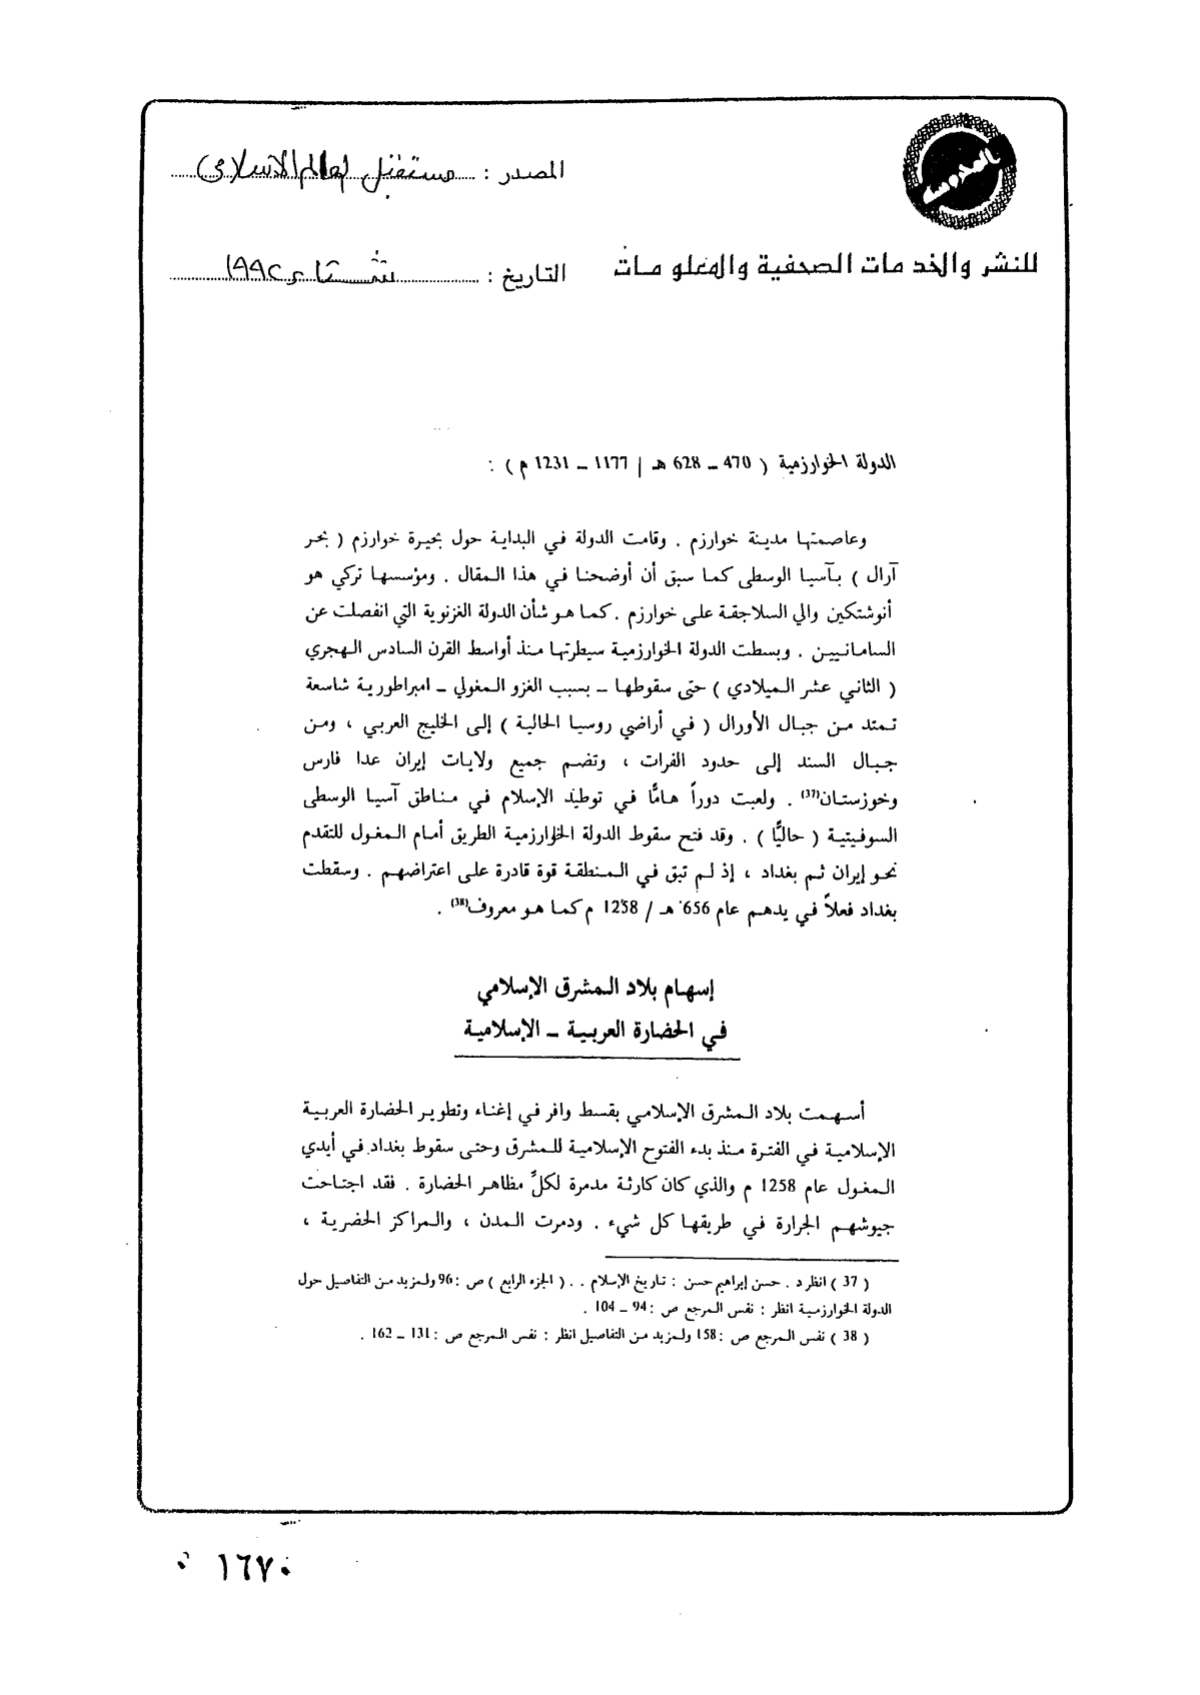 المصدر : مستقبل العالم الاسلامي
للنشر والخدمات الصحفية والمعلومات
التاريخ : شتاء ١٩٩٢
الدولة الخوارزمية ( 470 – 628 هـ / 1177 – 1231 م ) :
وعاصمتها مدينة خوارزم . وقامت الدولة في البداية حول بحيرة خوارزم ( بحر
آرال ) بآسيا الوسطى كما سبق أن أوضحنا في هذا المقال . ومؤسسها تركي هو
أنوشتكين والي السلاجقة على خوارزم . كما هو شأن الدولة الغزنوية التي انفصلت عن
السامانيين . وبسطت الدولة الخوارزمية سيطرتها منذ أواسط القرن السادس الهجري
( الثاني عشر الميلادي ) حتى سقوطها – بسبب الغزو المغولي – امبراطورية شاسعة
تمتد من جبال الأورال ( في أراضي روسيا الحالية ) إلى الخليج العربي ، ومن
جبال السند إلى حدود الفرات ، وتضم جميع ولايات إيران عدا فارس
وخوزستان(37) . ولعبت دوراً هامًّا في توطيد الإسلام في مناطق آسيا الوسطى
السوفيتية ( حاليًّا ) . وقد فتح سقوط الدولة الخوارزمية الطريق أمام المغول للتقدم
نحو إيران ثم بغداد ، إذ لم تبق في المنطقة قوة قادرة على اعتراضهم . وسقطت
بغداد فعلاً في يدهم عام 656 هـ / 1258 م كما هو معروف(38) .
إسهام بلاد المشرق الإسلامي
في الحضارة العربية – الإسلامية
أسهمت بلاد المشرق الإسلامي بقسط وافر في إغناء وتطوير الحضارة العربية
الإسلامية في الفترة منذ بدء الفتوح الإسلامية للمشرق وحتى سقوط بغداد في أيدي
المغول عام 1258 م والذي كان كارثة مدمرة لكلِّ مظاهر الحضارة . فقد اجتاحت
جيوشهم الجرارة في طريقها كل شيء . ودمرت المدن ، والمراكز الحضرية ،
( 37 ) انظر د . حسن إبراهيم حسن : تاريخ الإسلام . . ( الجزء الرابع ) ص : 96 ولمزيد من التفاصيل حول
الدولة الخوارزمية انظر : نفس المرجع ص : 94 – 104 .
( 38 ) نفس المرجع ص : 158 ولمزيد من التفاصيل انظر : نفس المرجع ص : 131 – 162 .
١٦٧٠